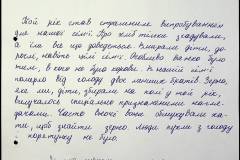 Той рік став страшним випробуванням
для нашої сім'ї. Про хліб тільки згадували,
а їли все що доведеться. Вмирали діти, до-
рослі, навіть цілі сім'ї. Особливо важко було
тим, в кого не було корови. В нашій сім'ї
померло від голоду двоє менших братів. Зерно,
яке ми, діти, збирали на полі у той рік,
вилучалось спеціально призначеними нагля-
дачами. Часто вночі вони обшукували ха-
ти, щоб знайти зерно. Люди пухли з голоду
- порятунку не було.